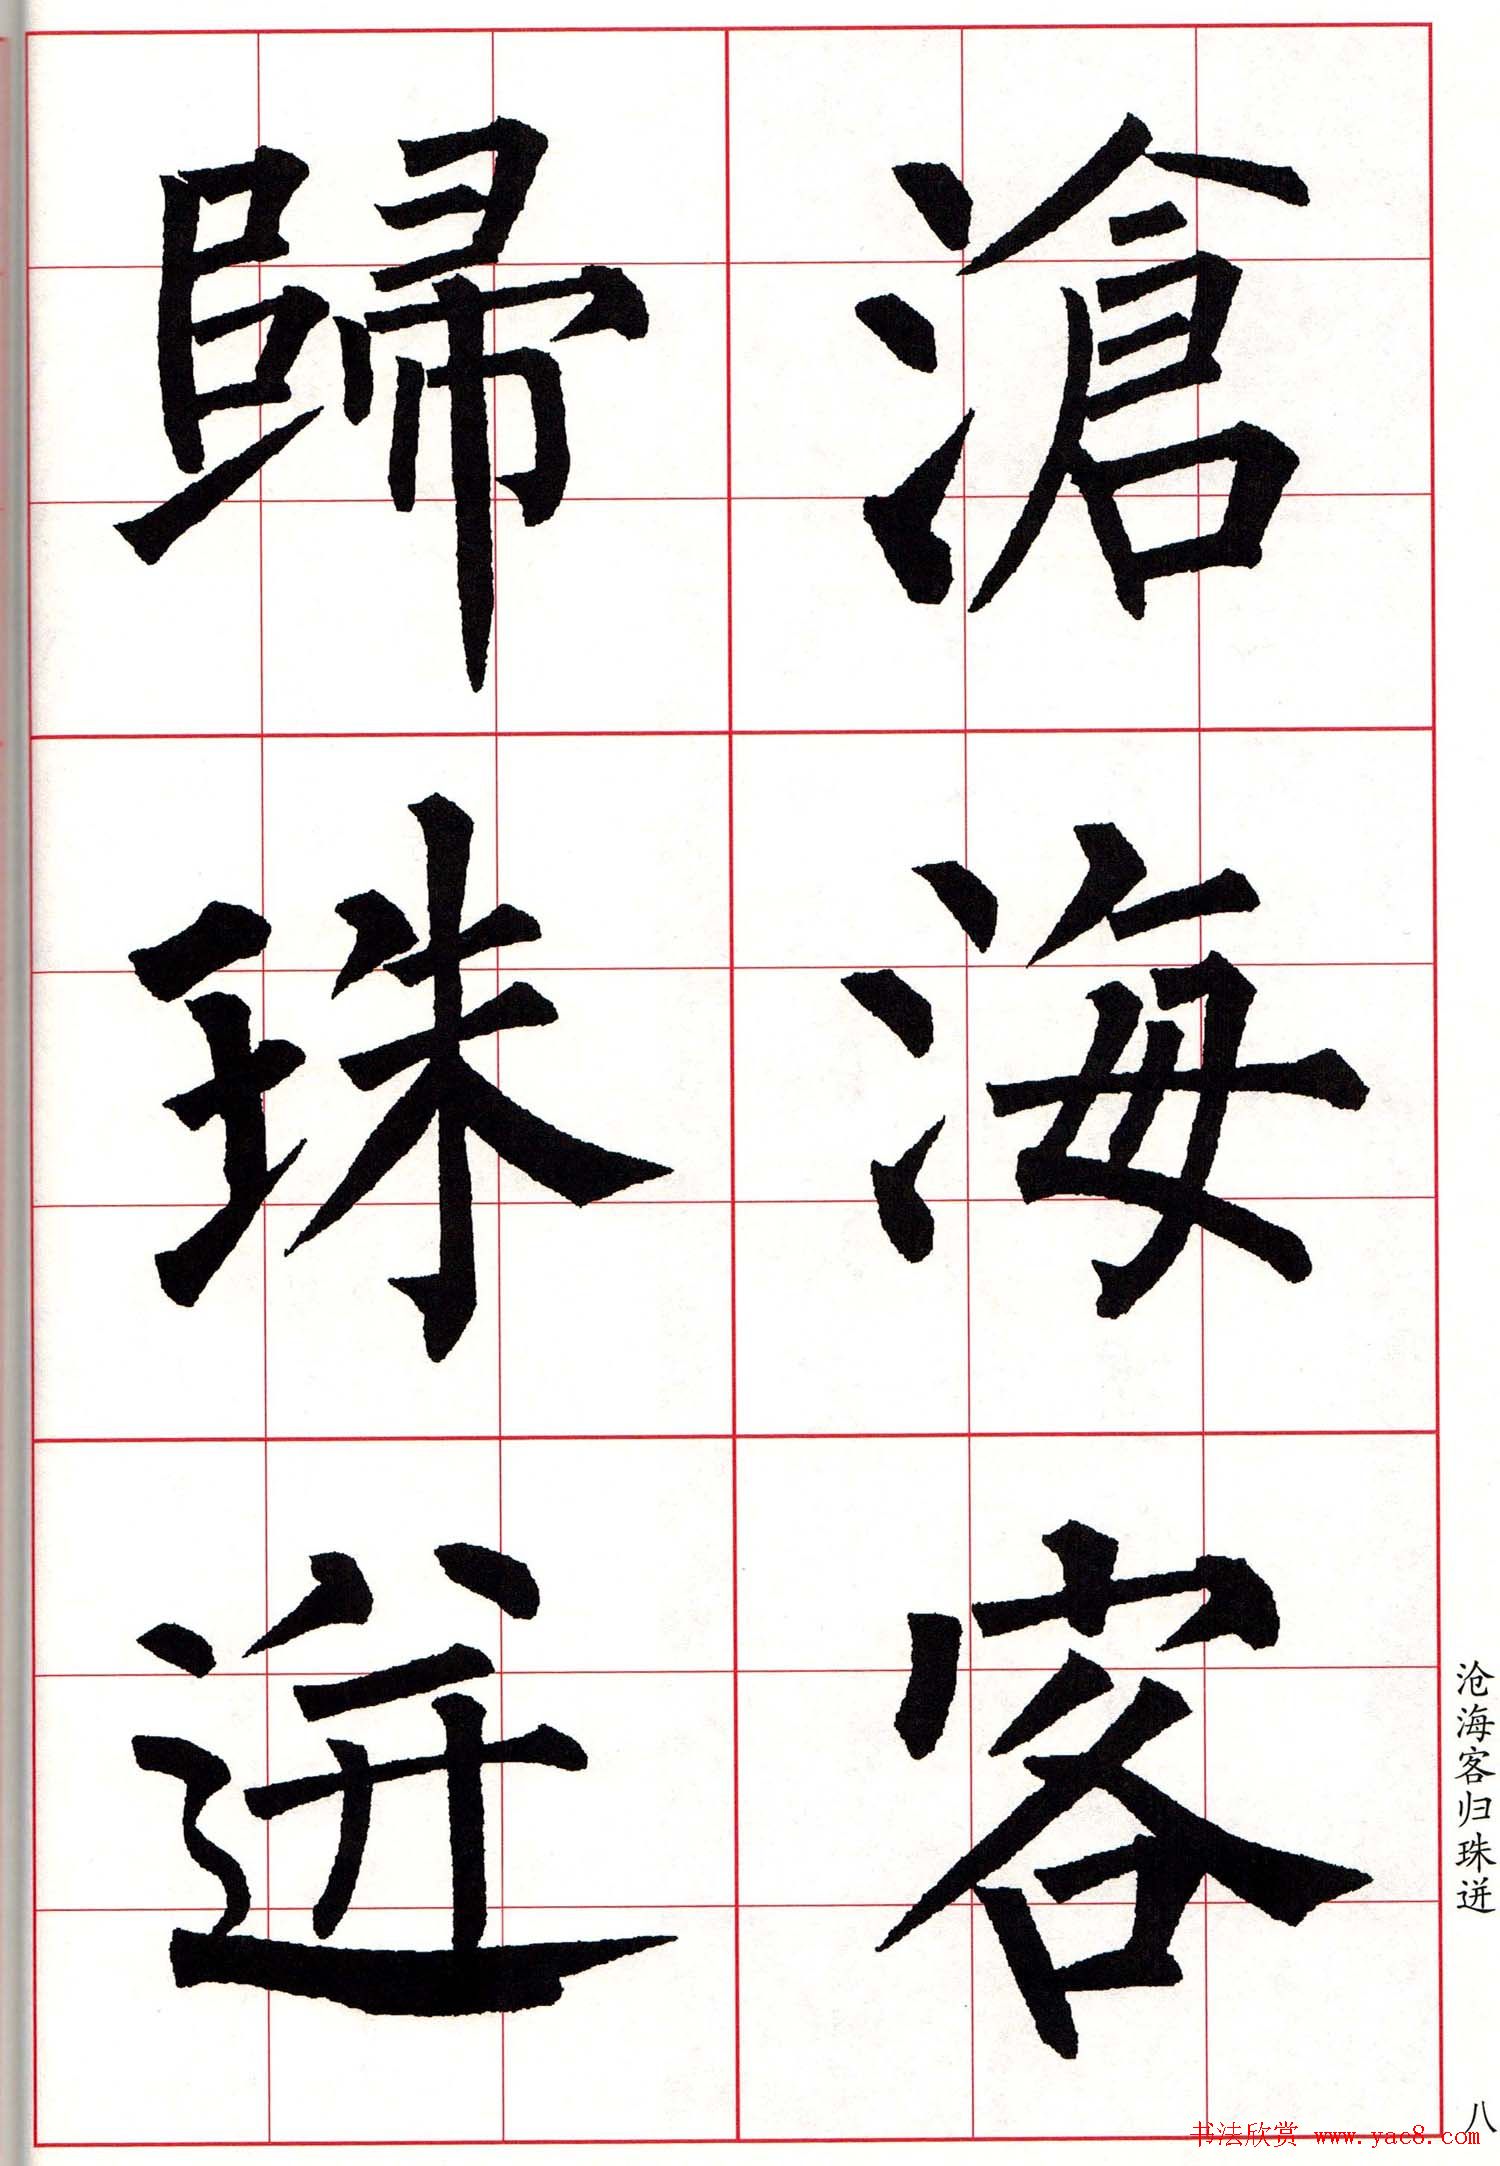 滄海客
歸珠迸
沧海客归珠迸
八
书法欣赏 www.yac8.com